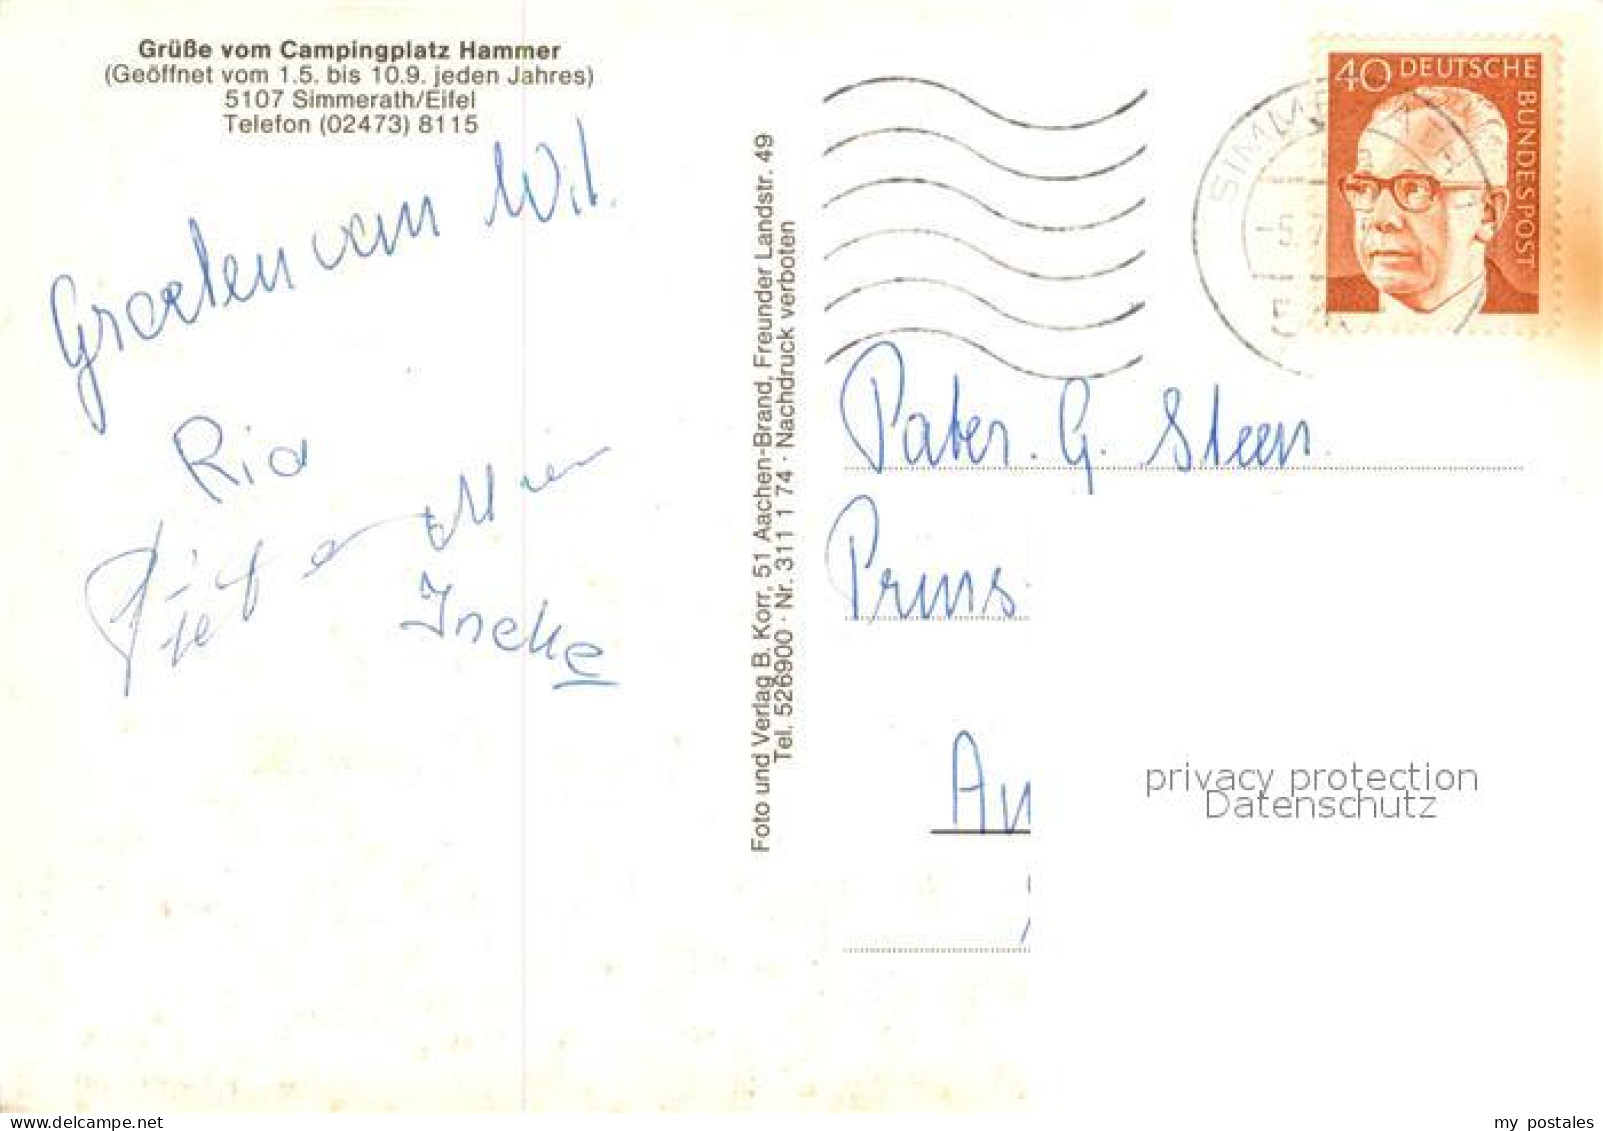 Grüße vom Campingplatz Hammer
(Geöffnet vom 1.5. bis 10.9. jeden Jahres)
5107 Simmerath/Eifel
Telefon (02473) 8115
Groeten van Wil.
Ria
Mien
Ineke
Foto und Verlag B. Korr, 51 Aachen-Brand, Freunder Landstr. 49
Tel. 526900 · Nr. 311 1 74 · Nachdruck verboten
40 DEUTSCHE
BUNDESPOST
SIMMERATH
Pater. G. Steen.
Prins
privacy protection
Datenschutz
my postales